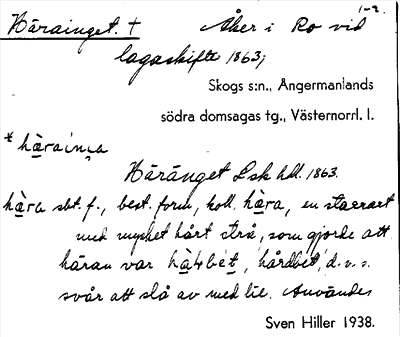 Härainget. † Åker i Ro vid
1-2.
lagaskifte 1863;
Skogs s:n., Ångermanlands
södra domsagas tg., Västernorrl. l.
* hàrain̡a
Häränget Lsk hdl. 1863.
hàra sbt. f., best. form, koll. hàra, en starrart
med mycket hårt strå, som gjorde att
häran var hà4bét, 'hårdbet', d. v. s.
svår att slå av med lie. Användes
Sven Hiller 1938.